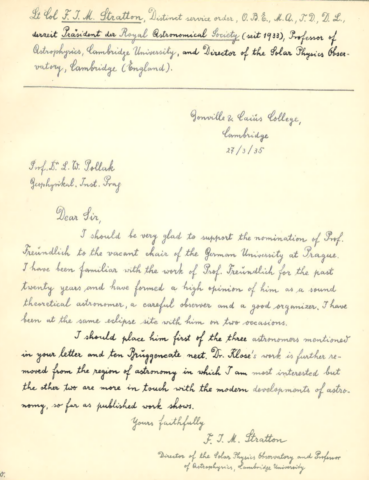 Lt Col F. J. M. Stratton, Distinct service order, O.B.E., M.A., T.D., D.L.,
derzeit Präsident der Royal Astronomical Society (seit 1933), Professor of
Astrophysics, Cambridge University, and Director of the Solar Physics Obser-
vatory, Cambridge (England).
Gonville & Caius College,
Cambridge
27/3/35
Prof. Dr L. W. Pollak
Geophysikal. Inst. Prag
Dear Sir,
I should be very glad to support the nomination of Prof.
Freündlich to the vacant chair of the German University at Prague.
I have been familiar with the work of Prof. Freündlich for the past
twenty years and have formed a high opinion of him as a sound
theoretical astronomer, a careful observer and a good organizer. I have
been at the same eclipse site with him on two occasions.
I should place him first of the three astronomers mentioned
in your letter and ten Brüggencate next. Dr. Klose's work is further re-
moved from the region of astronomy in which I am most interested but
the other two are more in touch with the modern developments of astro-
nomy, so far as published work shows.
Yours faithfully
F. J. M. Stratton
Director of the Solar Physics Observatory and Professor
of Astrophysics, Cambridge University